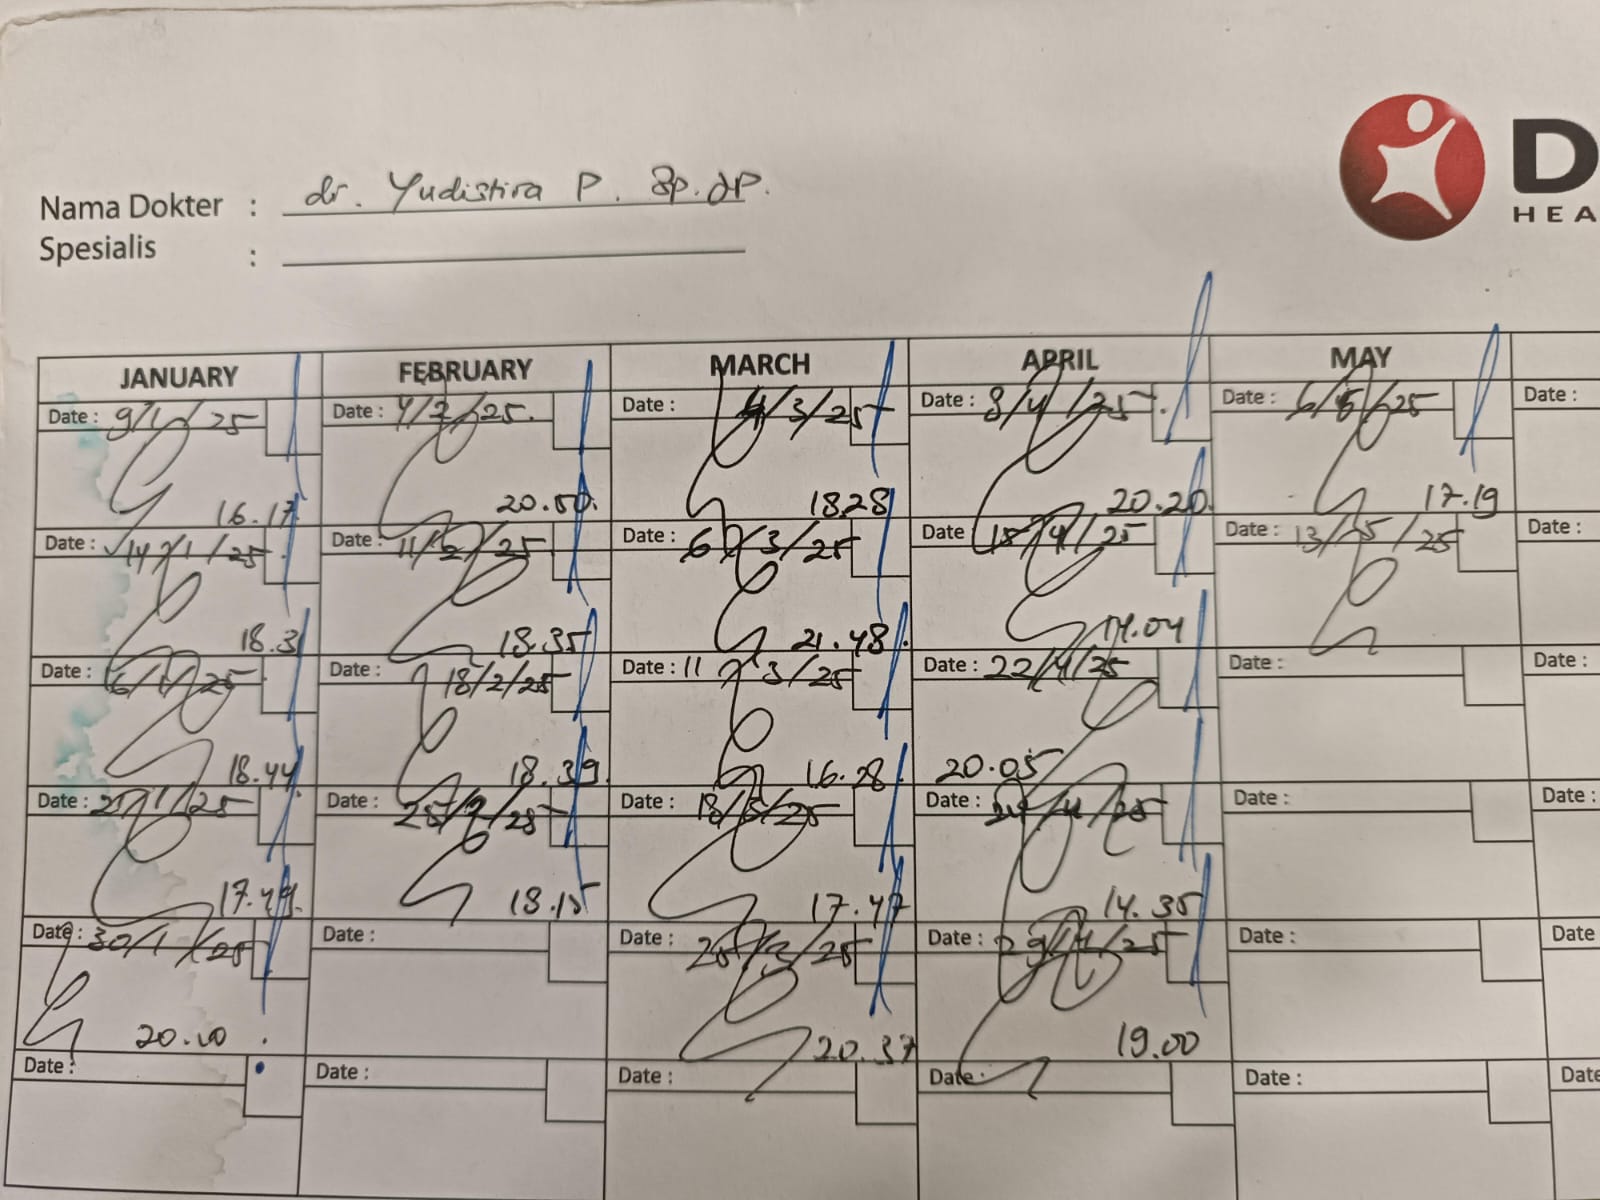 D
HEA
Nama Dokter : dr. Yudistira P. Sp.JP.
Spesialis :
JANUARY FEBRUARY MARCH APRIL MAY
Date : 9/1/25 Date : 4/2/25. Date : 4/3/25 Date : 8/4/25. Date : 6/5/25 Date :
16.17 20.50. 18.28 20.20. 17.19
Date : 14/1/25 Date : 11/2/25 Date : 6/3/25 Date : 15/4/25 Date : 13/5/25 Date :
18.3 18.35 21.48. 17.04
Date : 16/1/25 Date : 18/2/25 Date : 11/3/25 Date : 22/4/25 Date : Date :
18.44 18.39. 16.28 20.05
Date : 21/1/25 Date : 25/2/25 Date : 18/3/25 Date : /4/25 Date : Date :
17.49. 18.15 17.47 14.35
Date : 30/1/25 Date : Date : 25/3/25 Date : 29/4/25 Date : Date
20.10 20.37 19.00
Date : Date : Date : Date : Date : Date